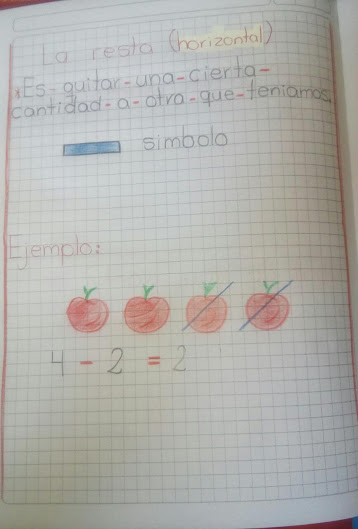 La resta (horizontal)
*Es-quitar-una-cierta-
cantidad-a-otra-que-teniamos.
simbolo
Ejemplo:
4 - 2 = 2